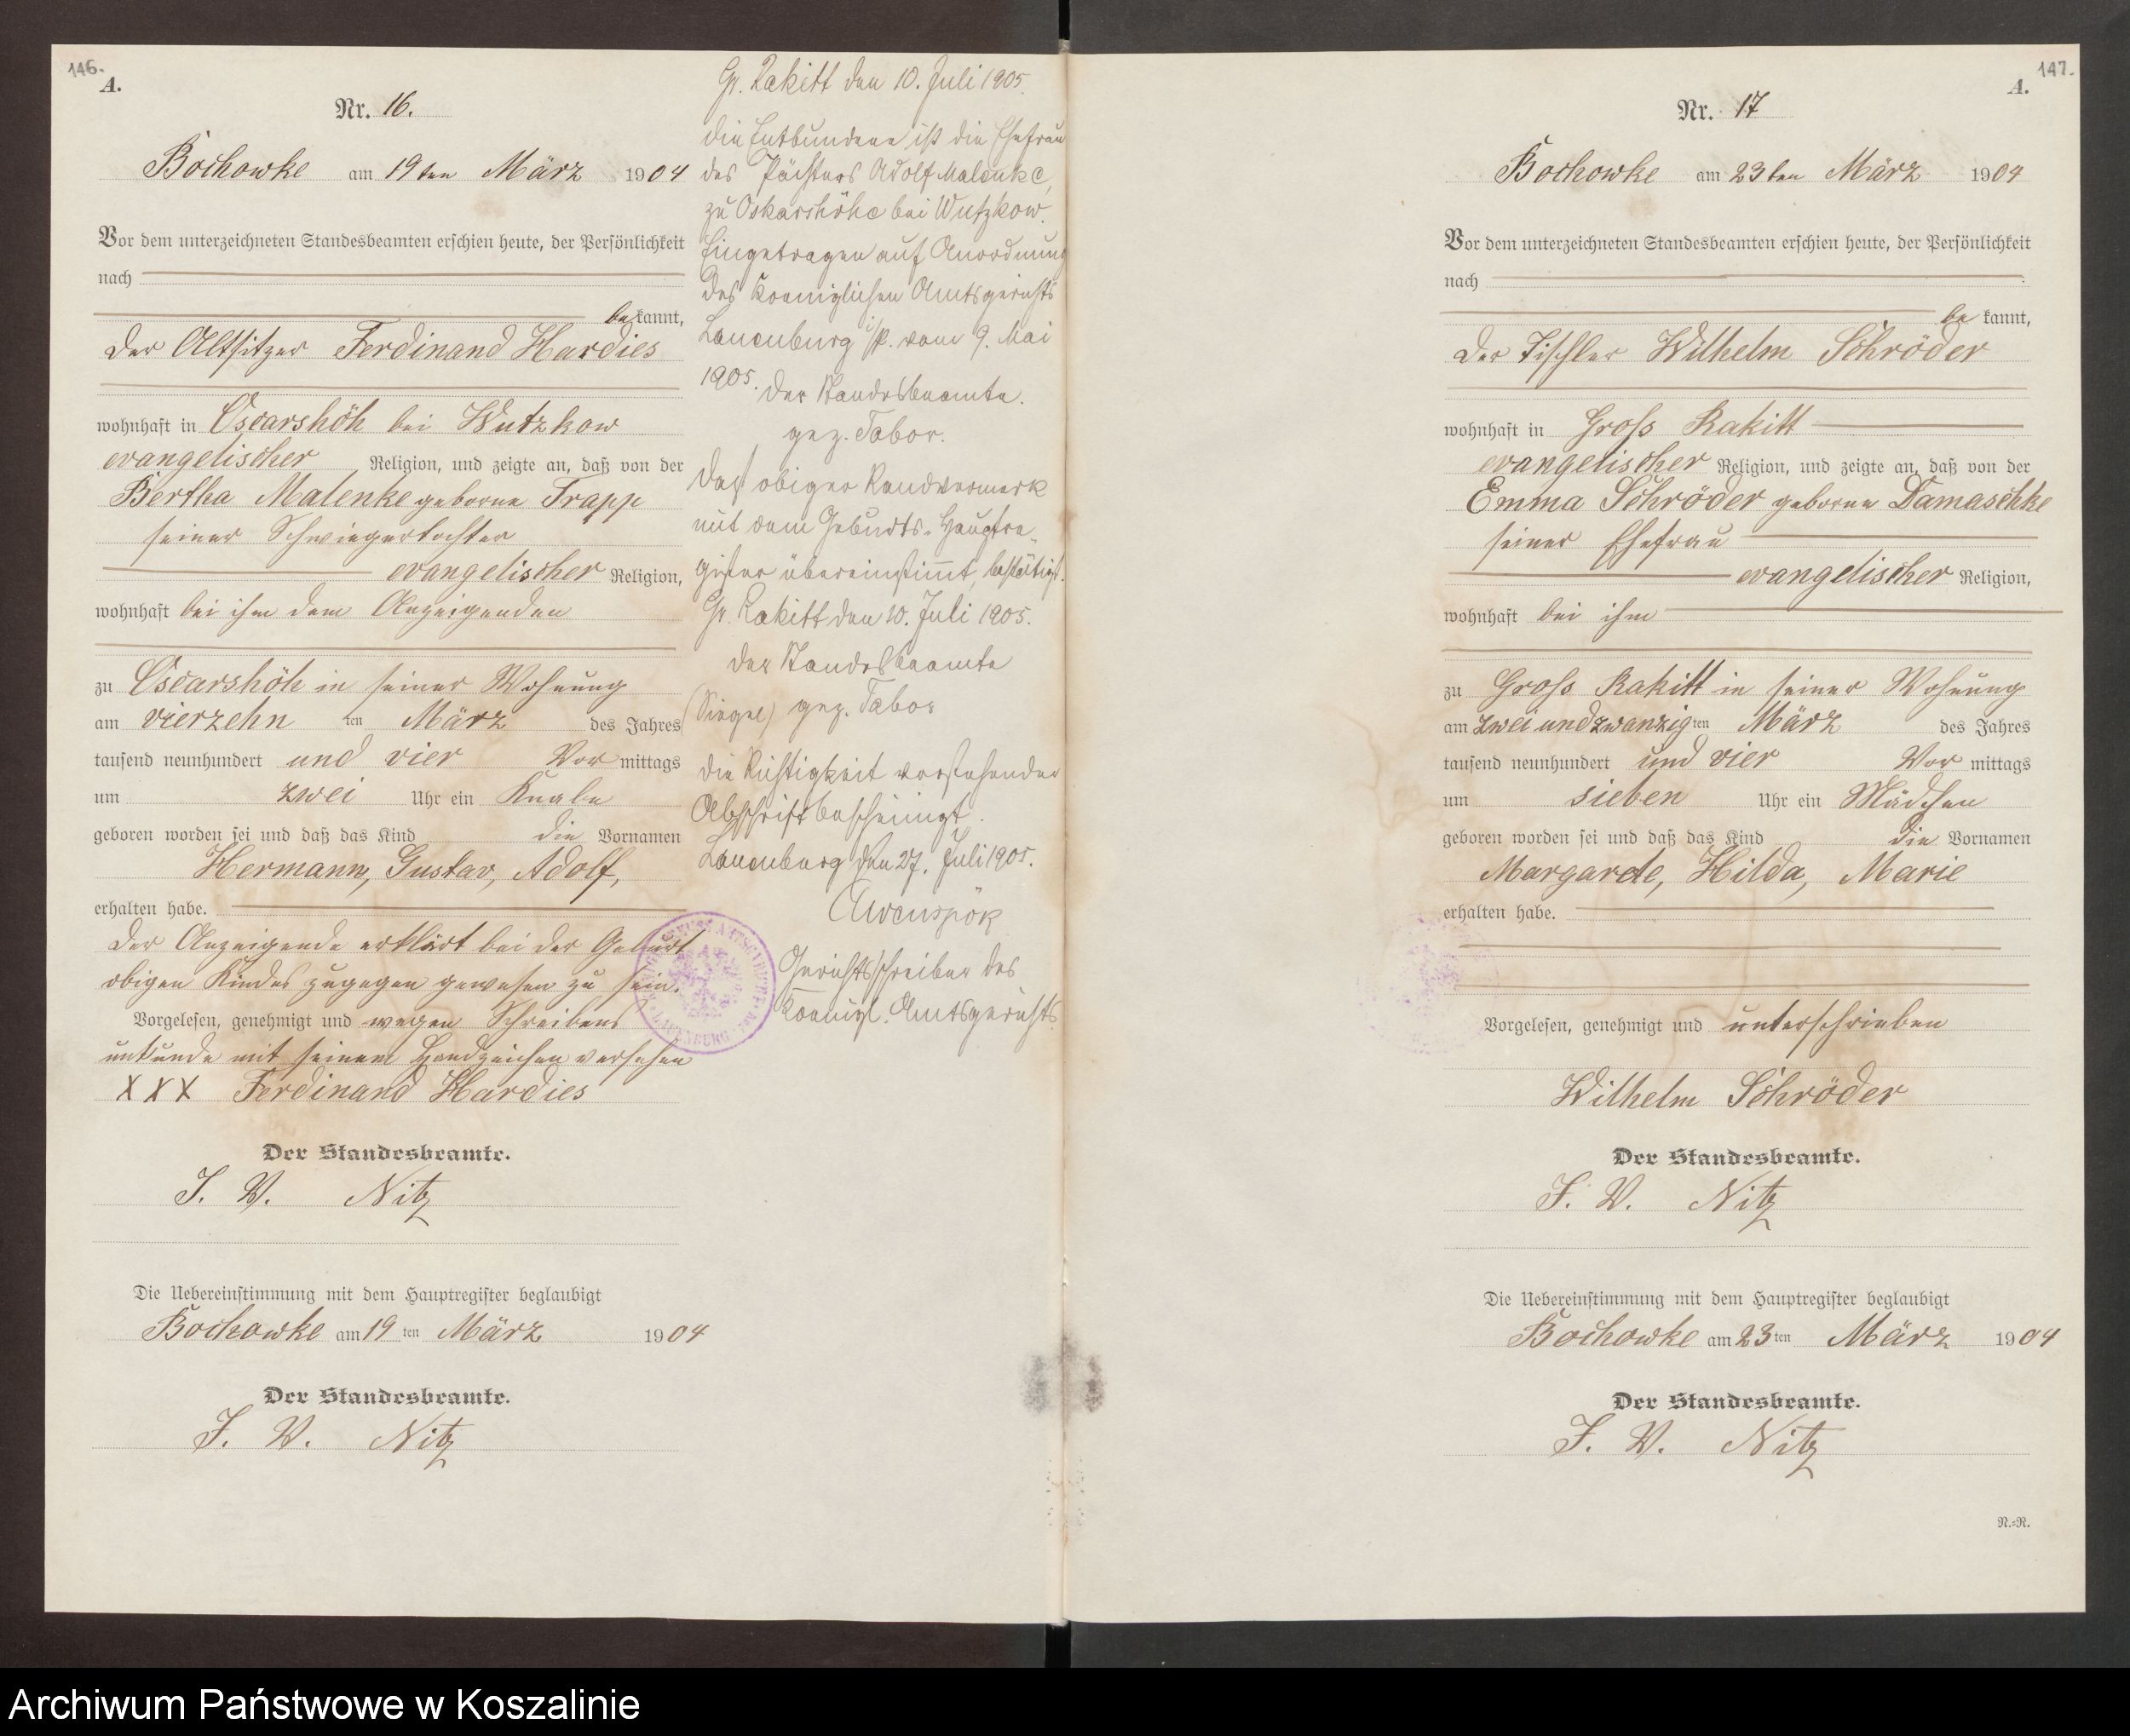 146.
A.
Nr. 16.
Bochowke am 19ten März 1904
Vor dem unterzeichneten Standesbeamten erschien heute, der Persönlichkeit
nach
bekannt,
der Altsitzer Ferdinand Hardies
wohnhaft in Oscarshöh bei Wutzkow
evangelischer Religion, und zeigte an, daß von der
Bertha Malenke geborne Trapp
seiner Schwiegertochter
evangelischer Religion,
wohnhaft bei ihm dem Anzeigenden
zu Oscarshöh in seiner Wohnung
am vierzehn ten März des Jahres
tausend neunhundert und vier Vor mittags
um zwei Uhr ein Knabe
geboren worden sei und daß das Kind die Vornamen
Hermann, Gustav, Adolf,
erhalten habe.
Der Anzeigende erklärt bei der Geburt
obigen Kindes zugegen gewesen zu sein.
Vorgelesen, genehmigt und wegen Schreibens
unkunde mit seinem Handzeichen versehen
XXX Ferdinand Hardies
Der Standesbeamte.
J. V. Nitz
Die Uebereinstimmung mit dem Hauptregister beglaubigt
Bochowke am 19 ten März 1904
Der Standesbeamte.
J. V. Nitz
Gr. Rakitt den 10. Juli 1905.
Die Entbundene ist die Ehefrau
des Pächters Adolf Malenke,
zu Oskarshöhe bei Wutzkow.
Eingetragen auf Anordnung
des Koeniglichen Amtsgerichts
Lauenburg i/P. vom 9. Mai
1905. Der Standesbeamte.
gez. Tabor.
Daß obiger Randvermerk
mit dem Geburts-Hauptre-
gister übereinstimmt, bestätigt.
Gr. Rakitt den 10. Juli 1905.
Der Standesbeamte
(Siegel) gez. Tabor
Die Richtigkeit vorstehender
Abschrift bescheinigt.
Lauenburg den 27. Juli 1905.
Gerichtsschreiber des
Koenigl. Amtsgerichts
147.
A.
Nr. 17
Bochowke am 23ten März 1904
Vor dem unterzeichneten Standesbeamten erschien heute, der Persönlichkeit
nach
be kannt,
der Tischler Wilhelm Schröder
wohnhaft in Gross Rakitt
evangelischer Religion, und zeigte an, daß von der
Emma Schröder geborne Damaschke
seiner Ehefrau
evangelischer Religion,
wohnhaft bei ihm
zu Gross Rakitt in seiner Wohnung
am zwei und zwanzig ten März des Jahres
tausend neunhundert und vier Vor mittags
um sieben Uhr ein Mädchen
geboren worden sei und daß das Kind die Vornamen
Margarete, Hilda, Marie
erhalten habe.
Vorgelesen, genehmigt und unterschrieben
Wilhelm Schröder
Der Standesbeamte.
J. V. Nitz
Die Uebereinstimmung mit dem Hauptregister beglaubigt
Bochowke am 23 ten März 1904
Der Standesbeamte.
J. V. Nitz
N.=R.
Archiwum Państwowe w Koszalinie